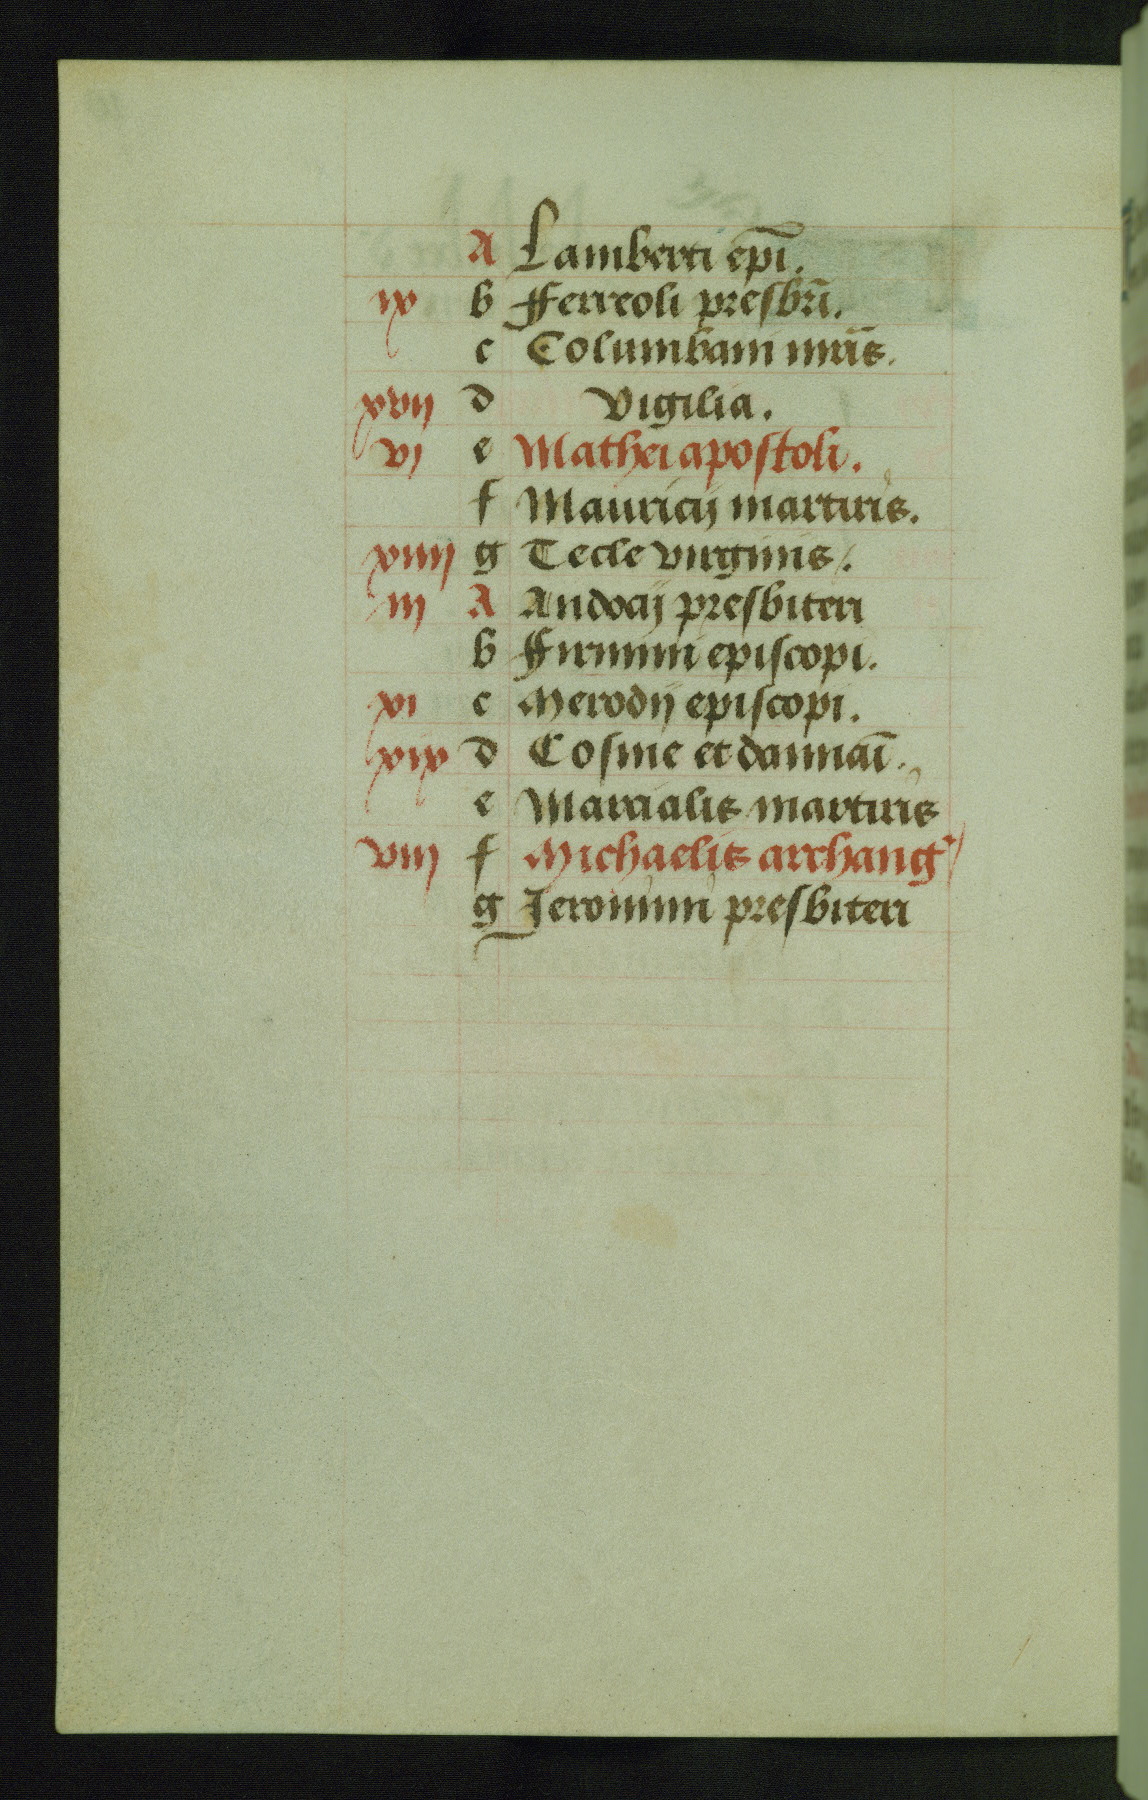 A Lamberti ep̄i.
ix b Ferreoli presbr̄i.
c Columbani mr̄is.
xvij d Vigilia.
vj e Mathei apostoli.
f Mauricij martiris.
xiiij g Tecle virginis.
iij A Andocij presbiteri
b Firmini episcopi.
xi c Merodij episcopi.
xix d Cosme et damiaī.
e Marcialis martiris
viij f Michaelis archang̃
g Jeronimi presbiteri